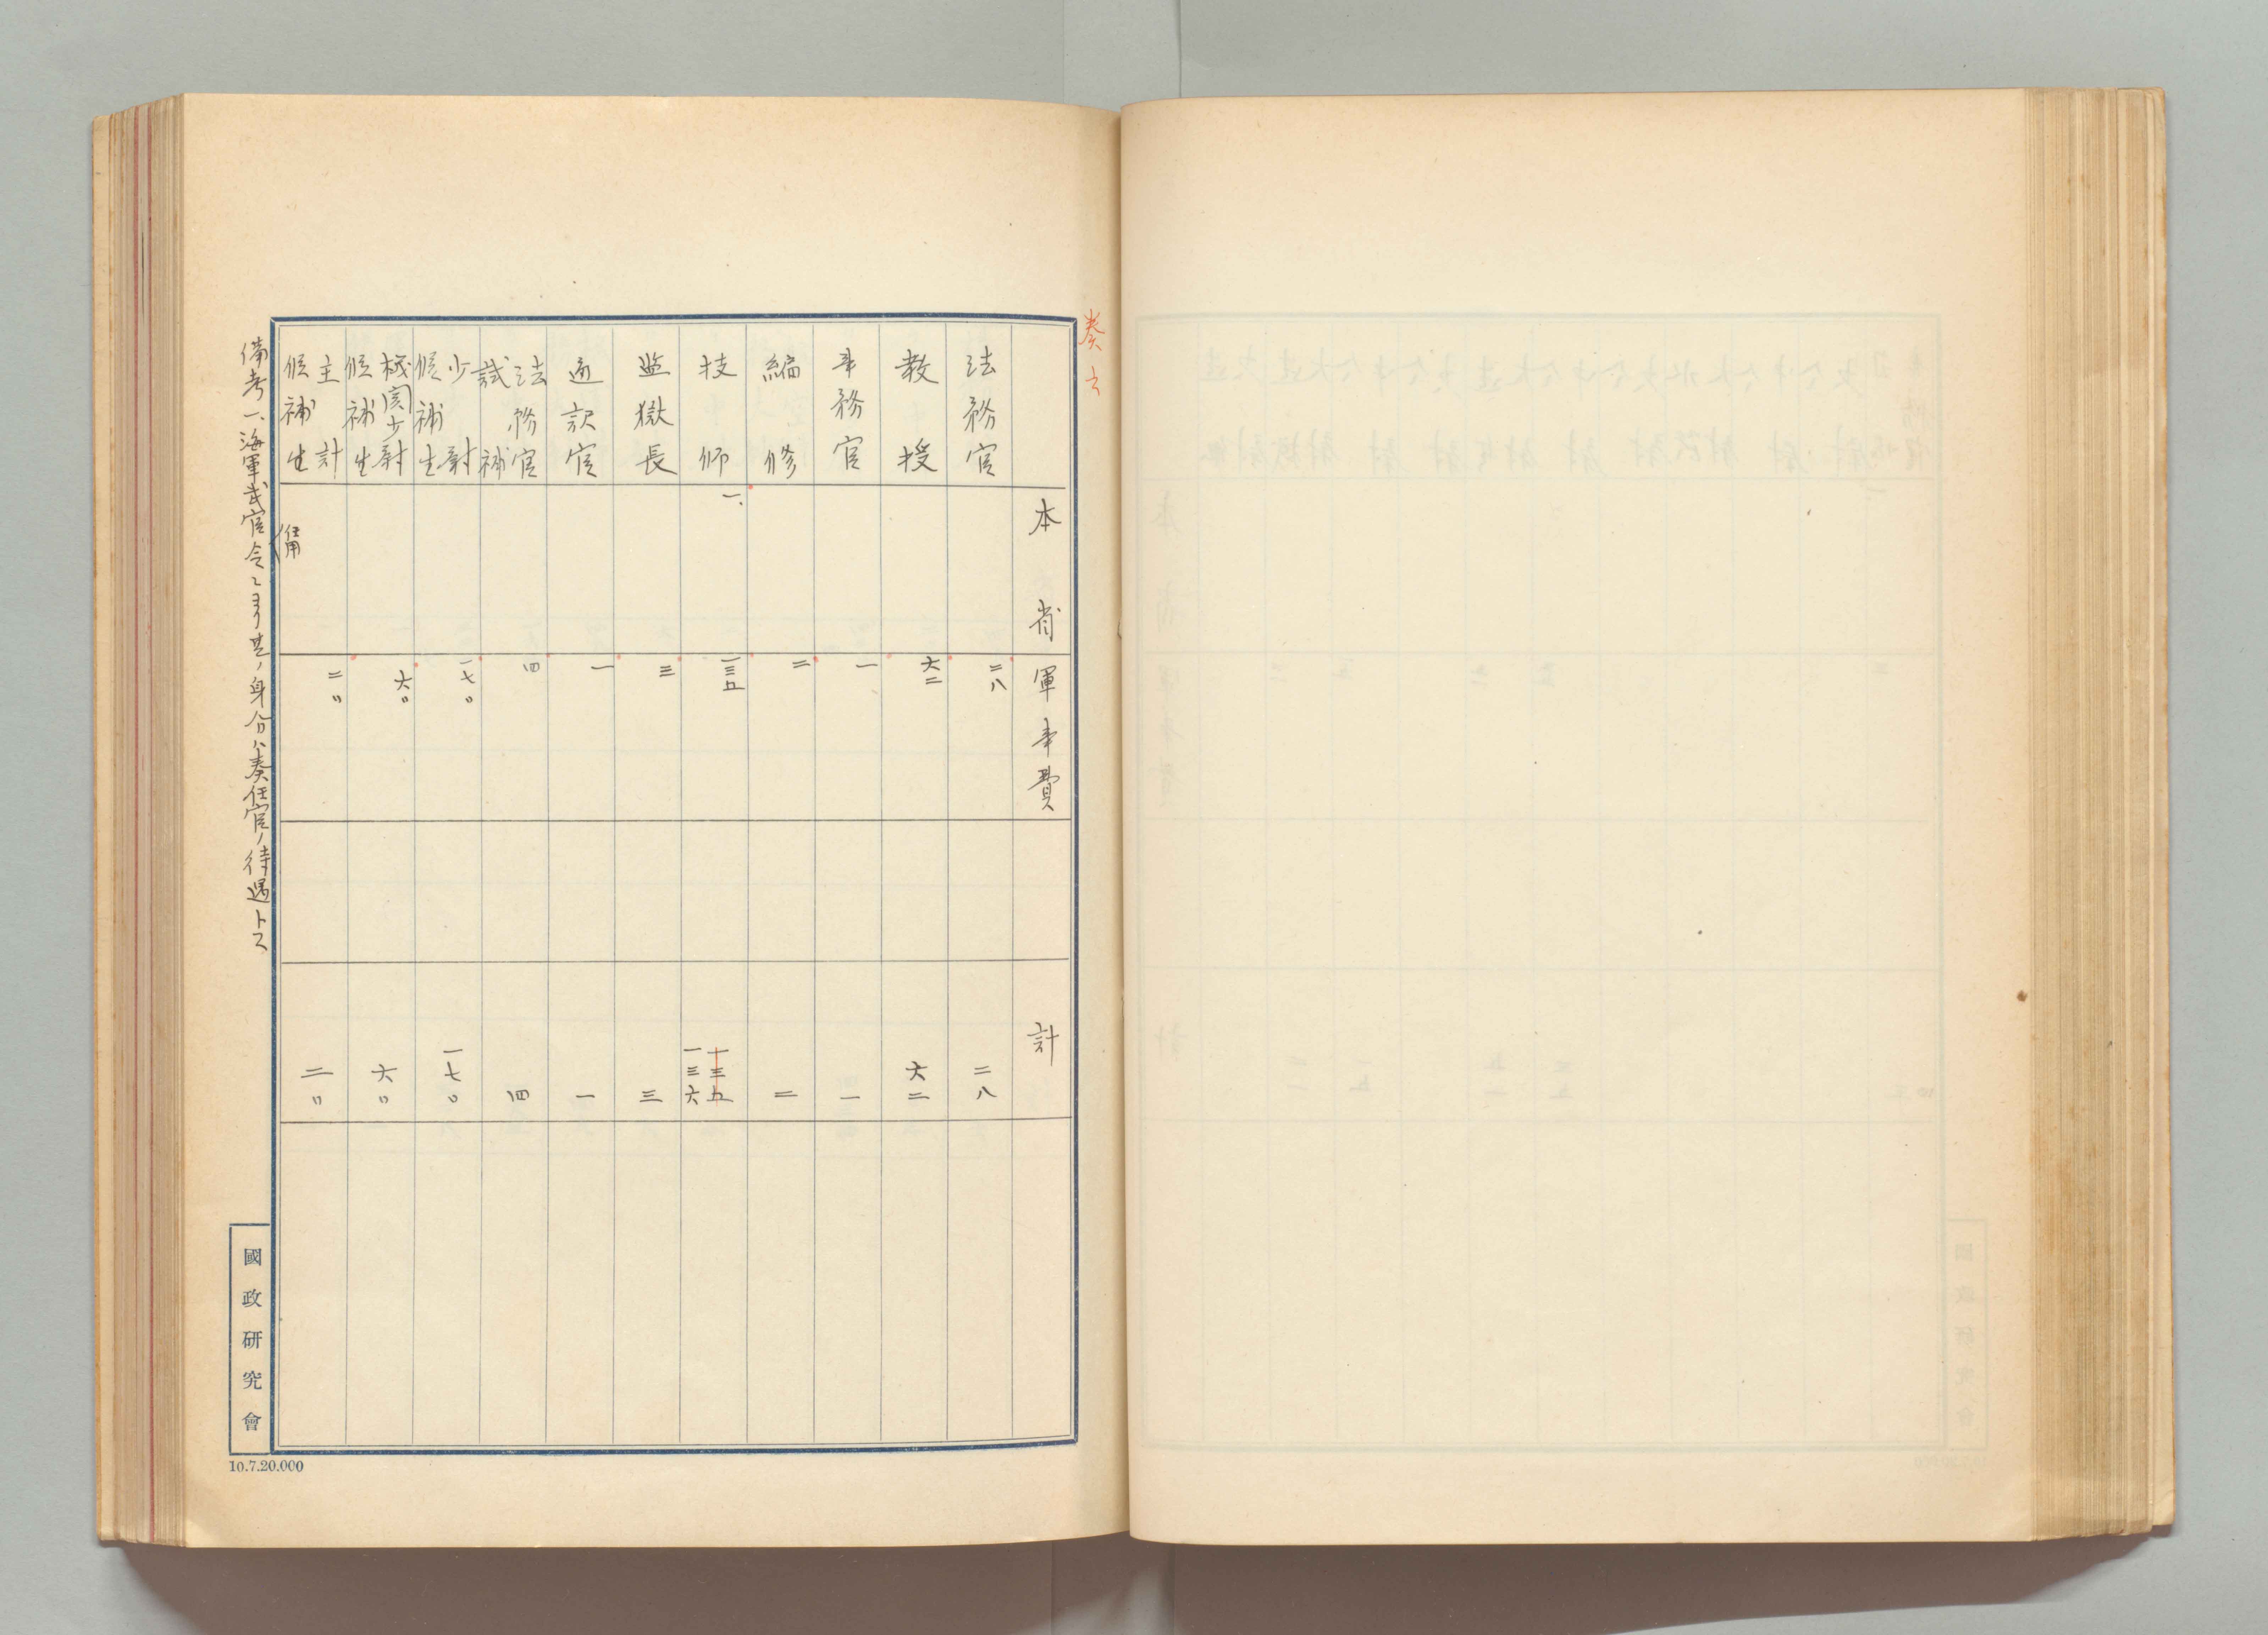 奏
本省 軍事費 計
法務官 二八 二八
教授 六二 六二
事務官 一 一
編修 二 二
技師 一 一三五 一三五 一三六
監獄長 三 三
通訳官 一 一
法務官試補 四 四
少尉候補生 一七〇 一七〇
機関少尉候補生 六〇 六〇
主計候補生 二〇 二〇
備考一、海軍武官任用令ニヨリ其ノ身分ハ奏任官ノ待遇トス
國政研究會
10.7.20.000